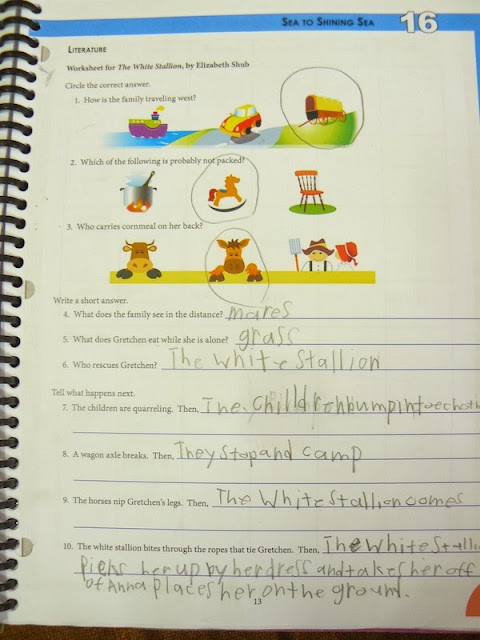 SEA TO SHINING SEA 16
LITERATURE
Worksheet for The White Stallion, by Elizabeth Shub
Circle the correct answer.
1. How is the family traveling west?
2. Which of the following is probably not packed?
3. Who carries cornmeal on her back?
Write a short answer.
4. What does the family see in the distance? mares
5. What does Gretchen eat while she is alone? grass
6. Who rescues Gretchen? The white stallion
Tell what happens next.
7. The children are quarreling. Then, The children bump into
8. A wagon axle breaks. Then, They stop and camp
9. The horses nip Gretchen's legs. Then, The White stallion comes
10. The white stallion bites through the ropes that tie Gretchen. Then, The white
picks her up by her dress and takes her off
of Anna places her on the ground.
13